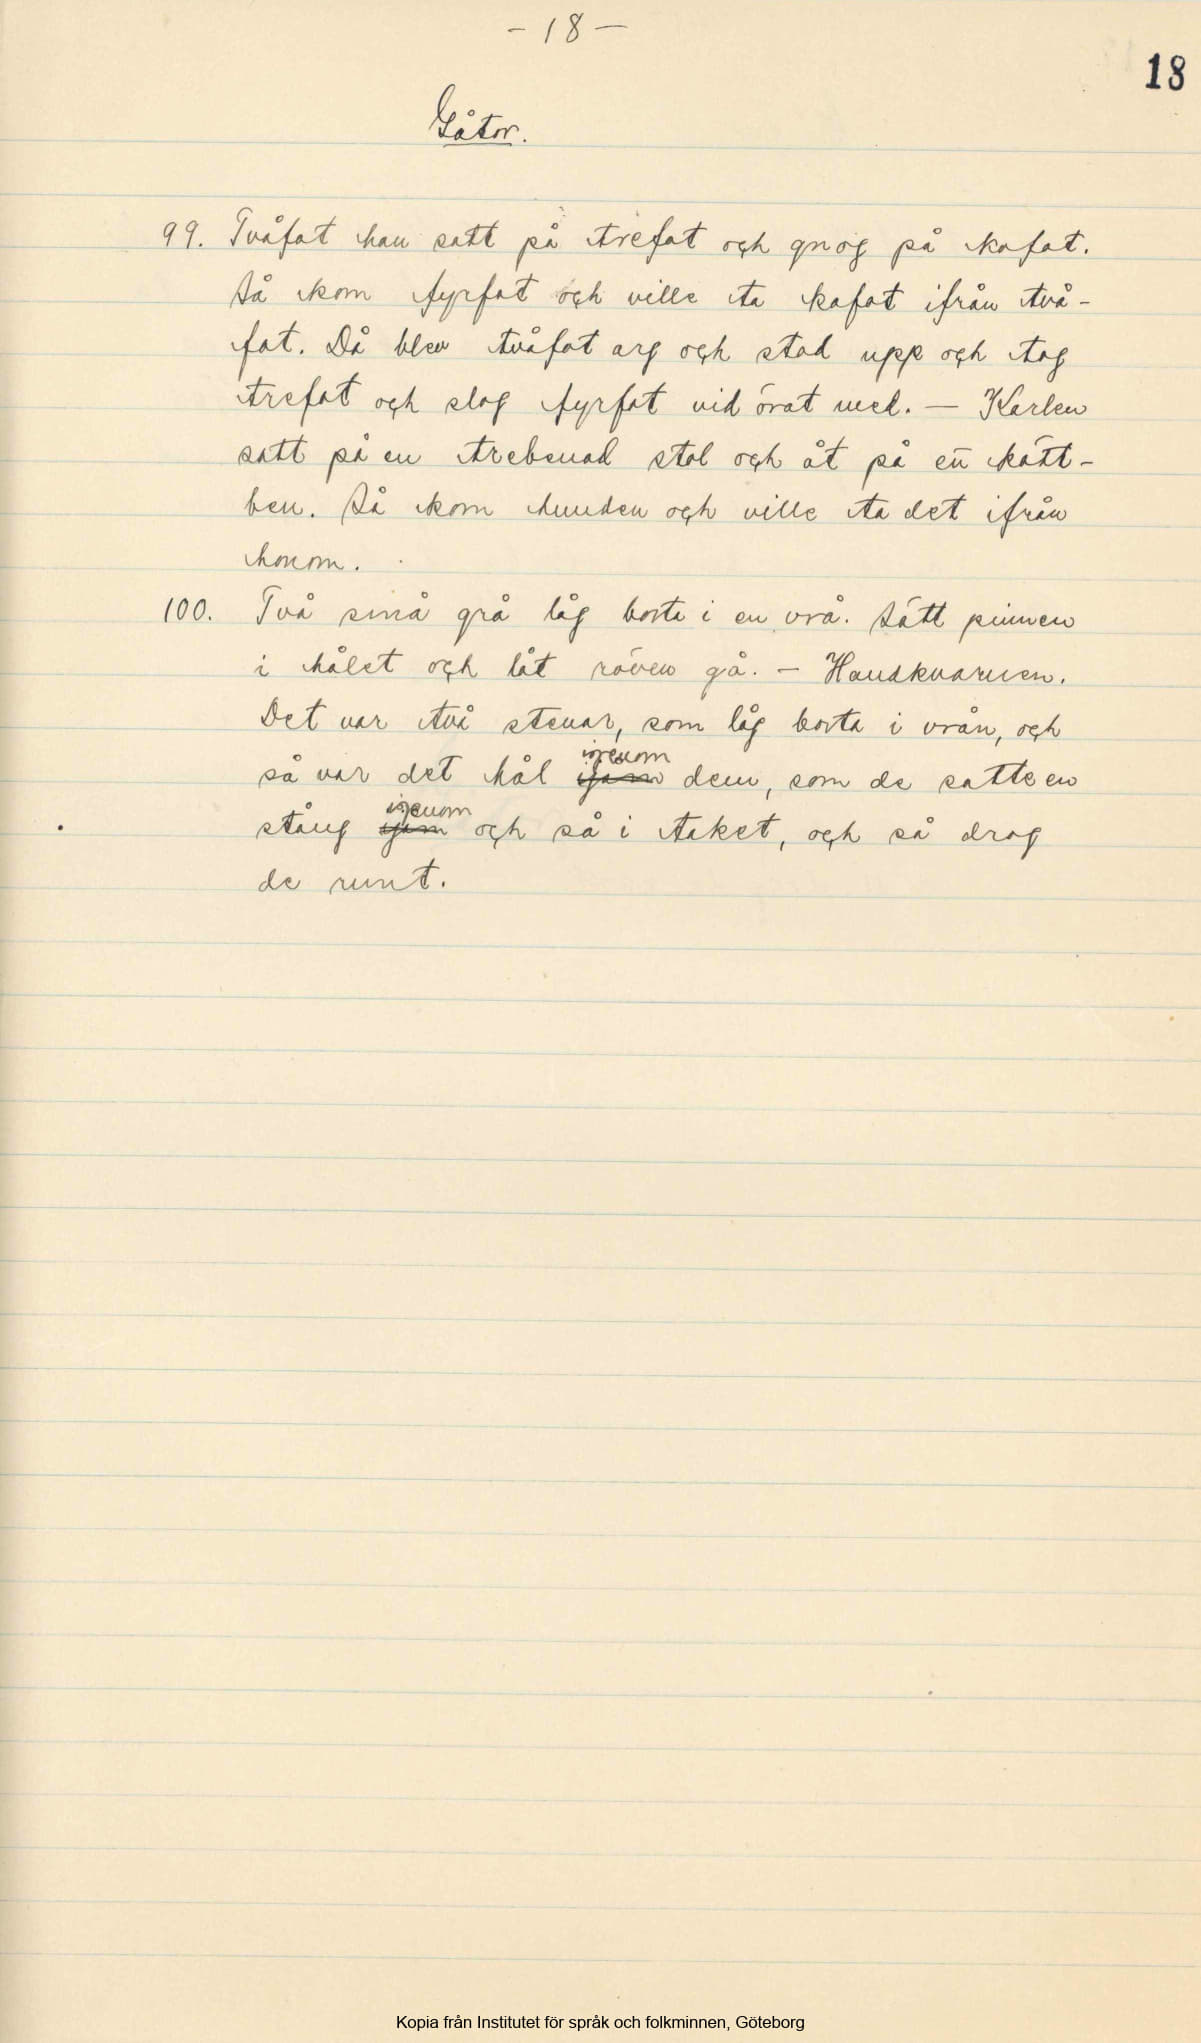 - 18 -
18
Gåtor.
99. Tvåfot han satt på trefot och gnog på kofot.
Så kom fyrfot och ville ta kofot ifrån två-
fot. Då blev tvåfot arg och stod upp och tog
trefot och slog fyrfot vid örat med. — Karlen
satt på en trebenad stol och åt på ett kött-
ben. Så kom hunden och ville ta det ifrån
honom.
100. Två små grå låg borta i en vrå. Sätt pinnen
i hålet och låt röven gå. — Handkvarnen.
Det var två stenar, som låg borta i vrån, och
igenom
så var det hål igom dem, som de satte en
igenom
stång igom och så i taket, och så drog
de runt.
Kopia från Institutet för språk och folkminnen, Göteborg